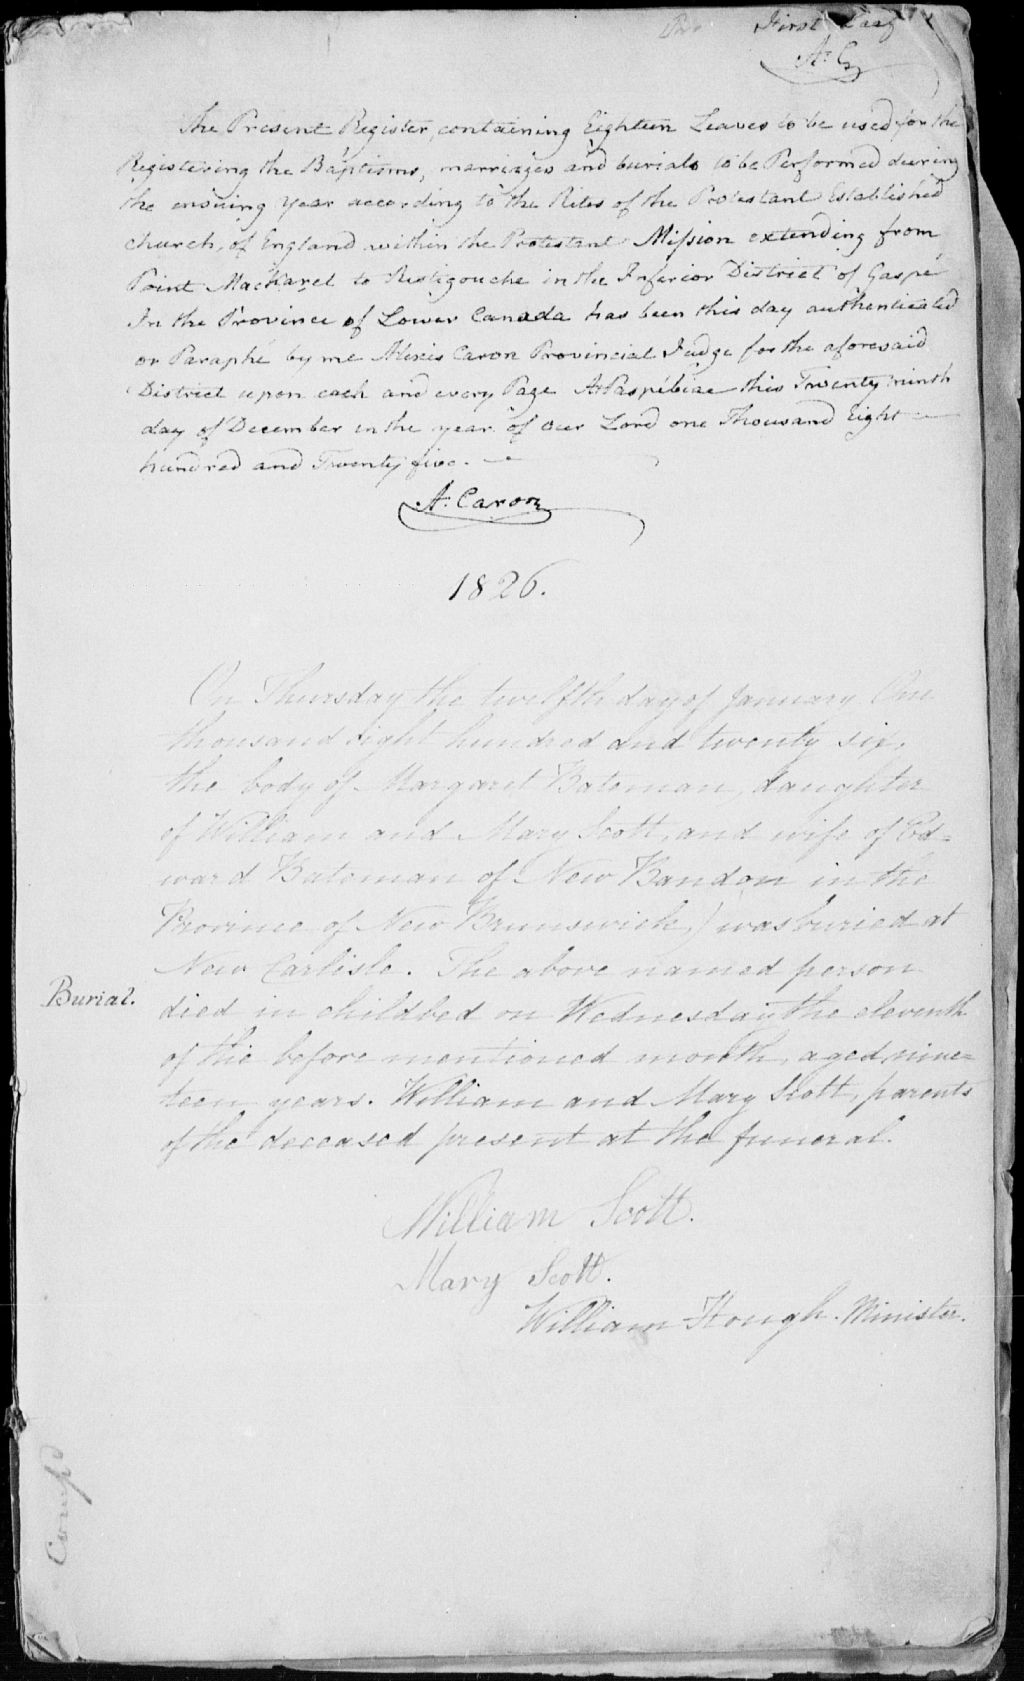 First Page
A. C.
The Present Register, containing Eighteen Leaves to be used for the
Registering the Baptisms, marriages and burials to be Performed during
the ensuing year according to the Rites of the Protestant Established
church, of England within the Protestant Mission extending from
Point Mackarel to Restigouche in the Inferior District of Gaspé
In the Province of Lower Canada has been this day authenticated
or Paraphé by me Alexis Caron Provincial Judge for the aforesaid
District upon each and every Page At Paspébiac this Twenty ninth
day of December in the year of our Lord one Thousand Eight
hundred and Twenty five.
A. Caron
1826.
On Thursday the twelfth day of January One
thousand eight hundred and twenty six,
the body of Margaret Bateman, daughter
of William and Mary Scott, and wife of Ed=
ward Bateman of New Bandon in the
Province of New Brunswick,) was buried at
New Carlisle. The above named person
Burial.
died in childbed on Wednesday the eleventh
of the before mentioned month, aged nine=
teen years. William and Mary Scott, parents
of the deceased present at the funeral.
William Scott.
Mary Scott.
William Hough. Minister.
Comp'd